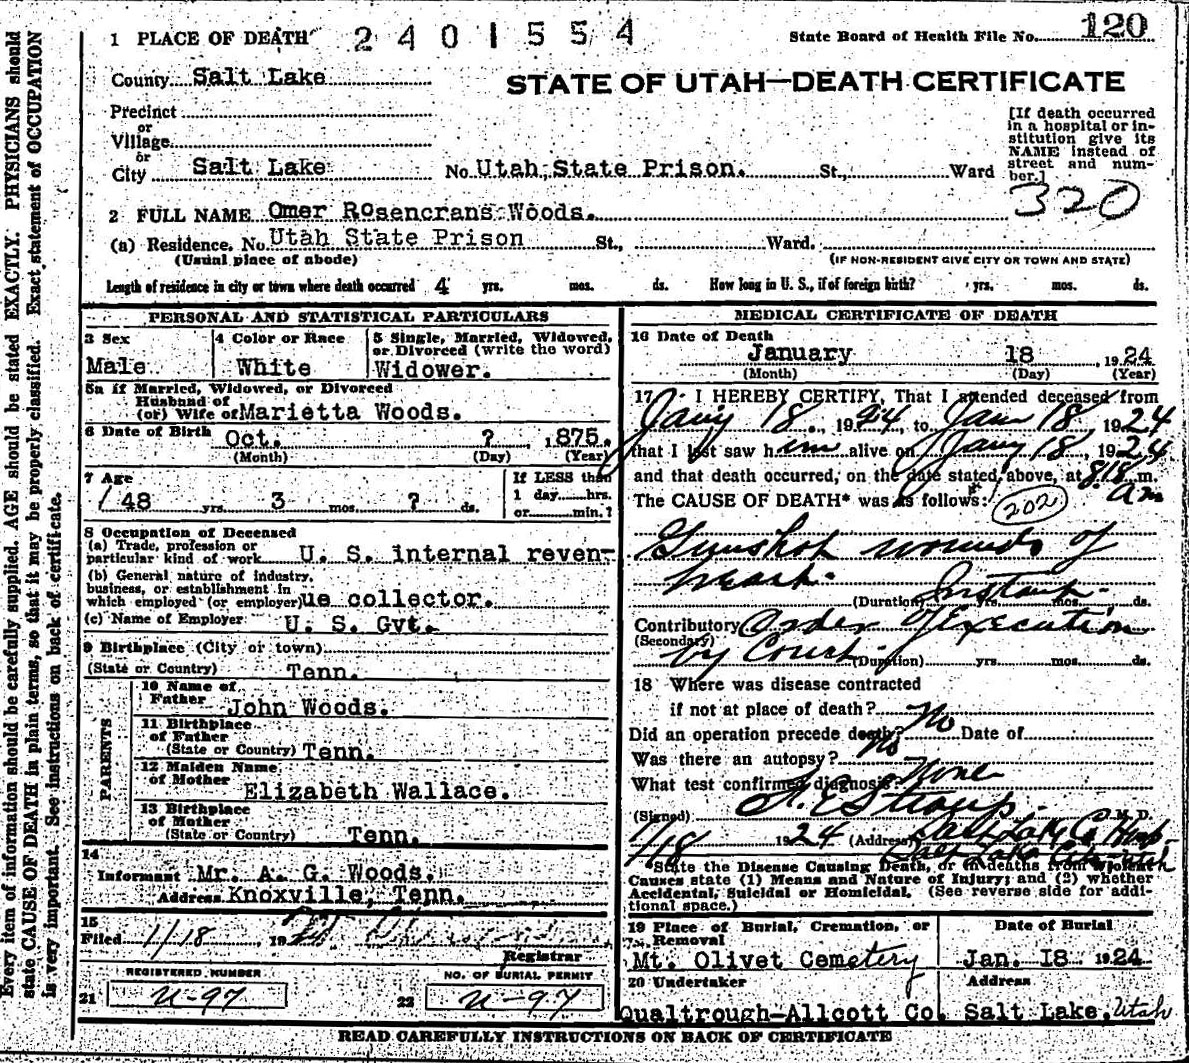 1 PLACE OF DEATH 2401554
State Board of Health File No. 120
County Salt Lake
STATE OF UTAH—DEATH CERTIFICATE
Precinct
or
Village
or
City Salt Lake No. Utah State Prison. St., Ward
[If death occurred
in a hospital or in-
stitution give its
NAME instead of
street and num-
ber.]
320
2 FULL NAME Omer Rosencrans Woods.
(a) Residence. No. Utah State Prison St., Ward.
(Usual place of abode) (IF NON-RESIDENT GIVE CITY OR TOWN AND STATE)
Length of residence in city or town where death occurred 4 yrs. mos. ds. How long in U. S., if of foreign birth? yrs. mos. ds.
PERSONAL AND STATISTICAL PARTICULARS
3 Sex
Male
4 Color or Race
White
5 Single, Married, Widowed,
or Divorced (write the word)
Widower.
5a if Married, Widowed, or Divorced
Husband of
(or) Wife of Marietta Woods.
6 Date of Birth Oct. ? 1875.
(Month) (Day) (Year)
7 Age
48 yrs. 3 mos. ? ds.
If LESS than
1 day hrs.
or min.?
8 Occupation of Deceased
(a) Trade, profession or
particular kind of work U. S. internal reven-
(b) General nature of industry,
business, or establishment in
which employed (or employer) ue collector.
(c) Name of Employer U. S. Gvt.
9 Birthplace (City or town)
(State or Country) Tenn.
PARENTS
10 Name of
Father John Woods.
11 Birthplace
of Father
(State or Country) Tenn.
12 Maiden Name
of Mother
Elizabeth Wallace.
13 Birthplace
of Mother
(State or Country) Tenn.
14
Informant Mr. A. G. Woods.
Address Knoxville, Tenn.
15
Filed 1/18 19
Registrar
REGISTERED NUMBER
21 U-97
NO. OF BURIAL PERMIT
22 U-97
MEDICAL CERTIFICATE OF DEATH
16 Date of Death
January 18 1924
(Month) (Day) (Year)
17 I HEREBY CERTIFY, That I attended deceased from
Jany 18, 1924, to Jan 18, 1924
that I last saw him alive on Jany 18, 1924
and that death occurred, on the date stated above, at 818 m.
am
The CAUSE OF DEATH* was as follows:
202
Gunshot wounds of
heart.
(Duration) Instant. yrs. mos. ds.
Contributory Order of Execution
(Secondary)
by Court. (Duration) yrs. mos. ds.
18 Where was disease contracted
if not at place of death? No
Did an operation precede death? No Date of
Was there an autopsy?
What test confirmed diagnosis? None
(Signed) M. D.
1/18 1924 (Address) Salt Lake Co Hosp
Salt Lake City Utah
*State the Disease Causing Death, or in deaths from Violent
Causes state (1) Means and Nature of Injury; and (2) whether
Accidental, Suicidal or Homicidal. (See reverse side for addi-
tional space.)
19 Place of Burial, Cremation, or
Removal
Mt. Olivet Cemetery
Date of Burial
Jan. 18 1924
20 Undertaker
Qualtrough-Allcott Co.
Address
Salt Lake, Utah
READ CAREFULLY INSTRUCTIONS ON BACK OF CERTIFICATE
Every item of information should be carefully supplied. AGE should be stated EXACTLY. PHYSICIANS should
state CAUSE OF DEATH in plain terms, so that it may be properly classified. Exact statement of OCCUPATION
is very important. See instructions on back of certificate.